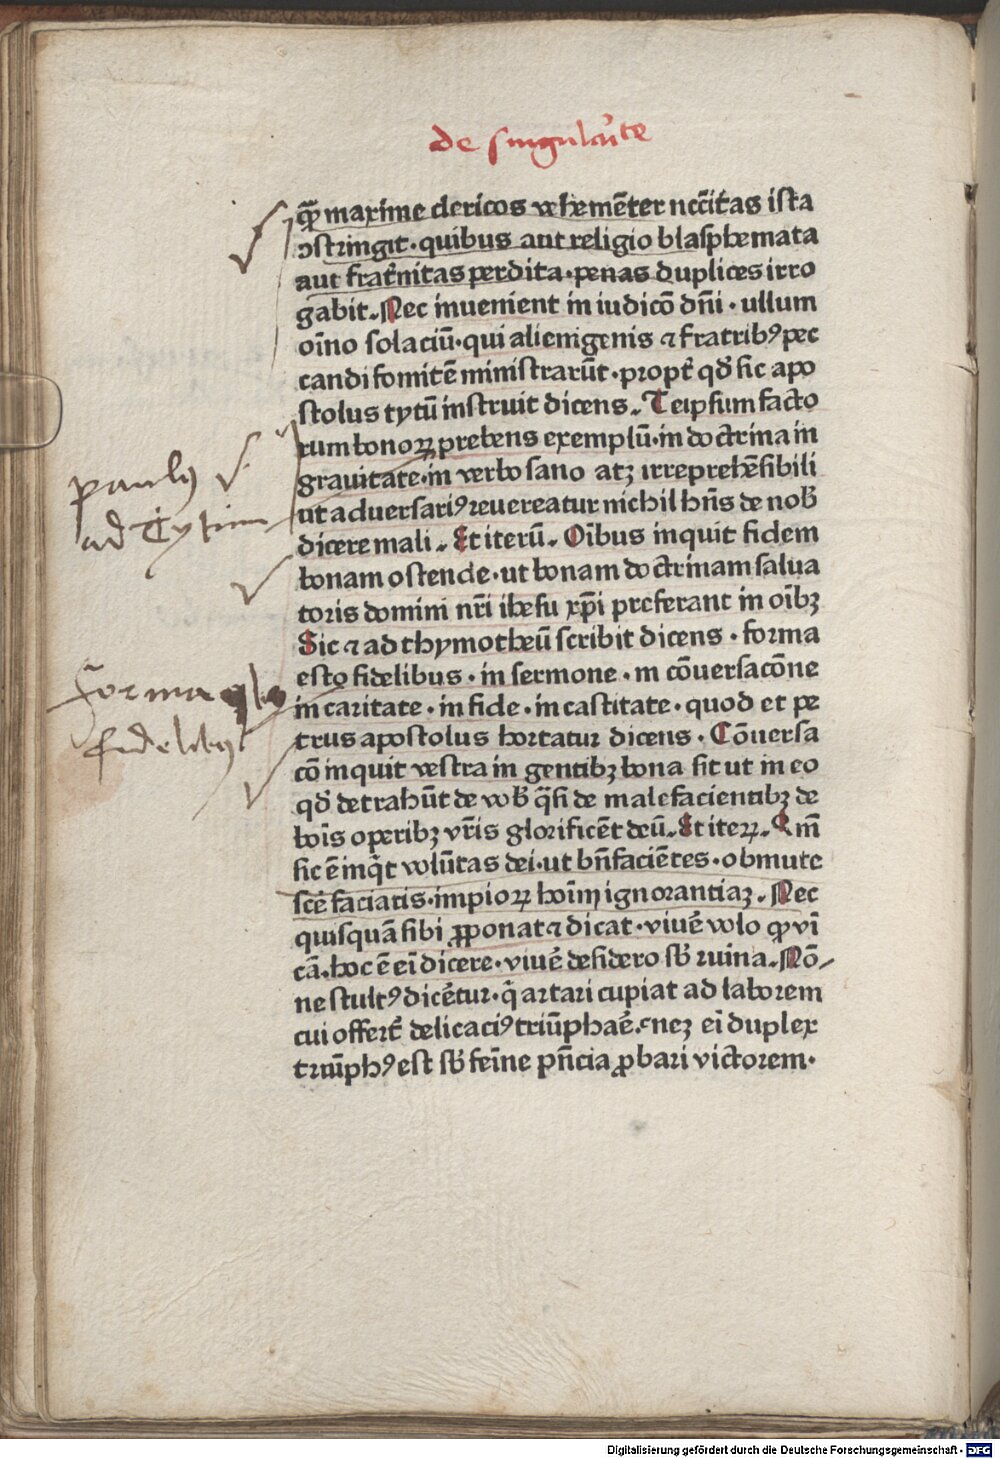 de singularite
qꝫ maxime clericos vehemēter nccītas ista
ↄstringit · quibus aut religio blasphemata
aut frat̄nitas perdita · penas duplices irro
gabit. Nec inuenient in iudicō dn̄i · ullum
oīno solaciū · qui alienigenis ⁊ fratribꝰ pec
candi fomitē ministrarūt · propt̄ qd̄ sic apo
stolus tytū instruit dicens. Teipsum facto
rum bonoꝝ prebens exemplū · in doctrina in
grauitate · in verbo sano atꝫ irreprehēsibili
ut aduersariꝰ reuereatur nichil hn̄s de nob̄
dicere mali. Et iterū. Oībus inquit fidem
bonam ostende · ut bonam doctrinam salua
toris domini nr̄i ihesu xp̄i preferant in oībꝫ
Sic ⁊ ad thymotheū scribit dicens · forma
esto fidelibus · in sermone · in cōuersacōne
in caritate · in fide · in castitate · quod et pe
trus apostolus hortatur dicens · Cōuersa
cō inquit vestra in gentibꝫ bona sit ut in eo
qd̄ detrahūt de vob̄ q̄si de malefacientibꝫ de
boīs operibꝫ vr̄is glorificēt deū. Et iteꝝ. Qm̄
sic ē inq̄t volūtas dei · ut bn̄faciētes · obmute
scē faciatis · impioꝝ hoīm ignorantiaꝫ. Nec
quisquā sibi ꝓponat ⁊ dicat · viuē volo ꝙ vī
cā. hoc ē eī dicere · viuē desidero sb̄ ruina. Nō
ne stultꝰ dicēt̄ur · q̄ artari cupiat ad laborem
cui offert̄ delicaciꝰ triūphaē. neꝫ eī duplex
triūphꝰ est sb̄ feīne pn̄cia ꝓbari victorem ·
paulꝰ
ad Tytum
Forma esto
fidelibꝰ
Digitalisierung gefördert durch die Deutsche Forschungsgemeinschaft · DFG